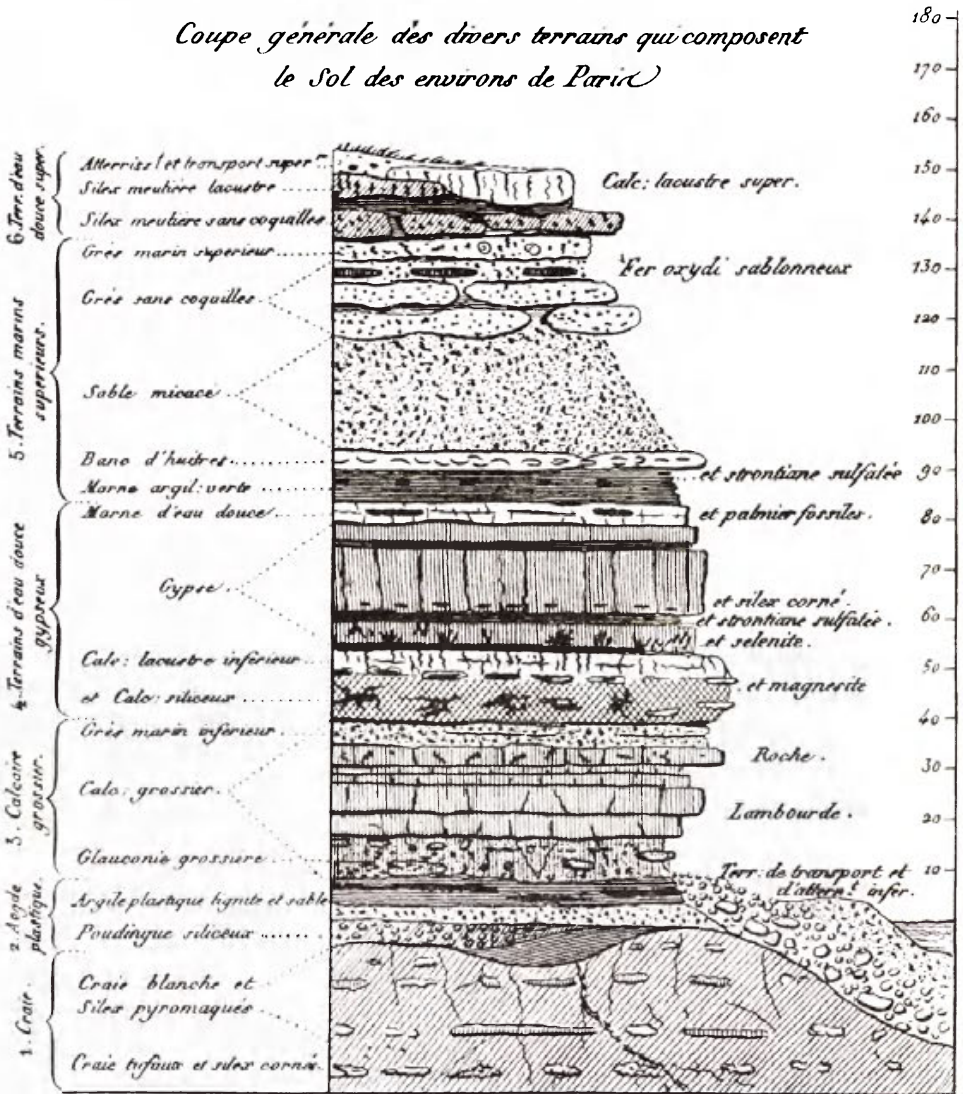 Coupe générale des divers terrains qui composent
le Sol des environs de Paris
6. Terr. d'eau
douce super.
Atterriss.t et transport super.r
Silex meulière lacustre
Silex meulière sans coquilles
5. Terrains marins
superieurs.
Grès marin superieur
Grés sans coquilles
Sable micacé
Banc d'huitres
Marne argil: verte
4. Terrains d'eau douce
gypseux
Marne d'eau douce
Gypse
Calc: lacustre inférieur
et Calc: siliceux
3. Calcaire
grossier.
Grès marin inférieur.
Calc. grossier
Glauconie grossière
2. Argile
plastique.
Argile plastique lignite et sable
Poudingue siliceux
1. Craie.
Craie blanche et
Silex pyromaques
Craie tufaux et silex cornés.
Calc: lacustre super.
Fer oxydé sablonneux
et strontiane sulfatée
et palmier fossiles.
et silex corné.
et strontiane sulfatée.
et selenite.
et magnesite
Roche.
Lambourde.
Terr. de transport et
d'atterr.t infer.
180
170
160
150
140
130
120
110
100
90
80
70
60
50
40
30
20
10